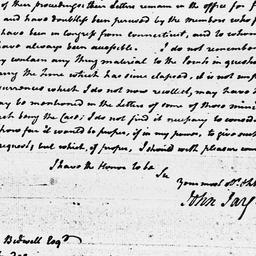 of their proceedings their Letters remain in the office for f
and have doubtless been perused by the members who
have been in congress from connecticut, and to whom
have always been accessible. I do not remember
y contain any thing material to the points in question
ing the Time which has since elapsed, it is not imp
currences which I do not now recollect, may have
ay be mentioned in the Letters of some of those minis
ch being the case; I do not find it necessary to conside
how far it would be proper, if in my power, to give out
request; but which, if proper, I should with pleasure com
I have the Honor to be
&c
your most obt &
John Jay
Bedwell Esqr